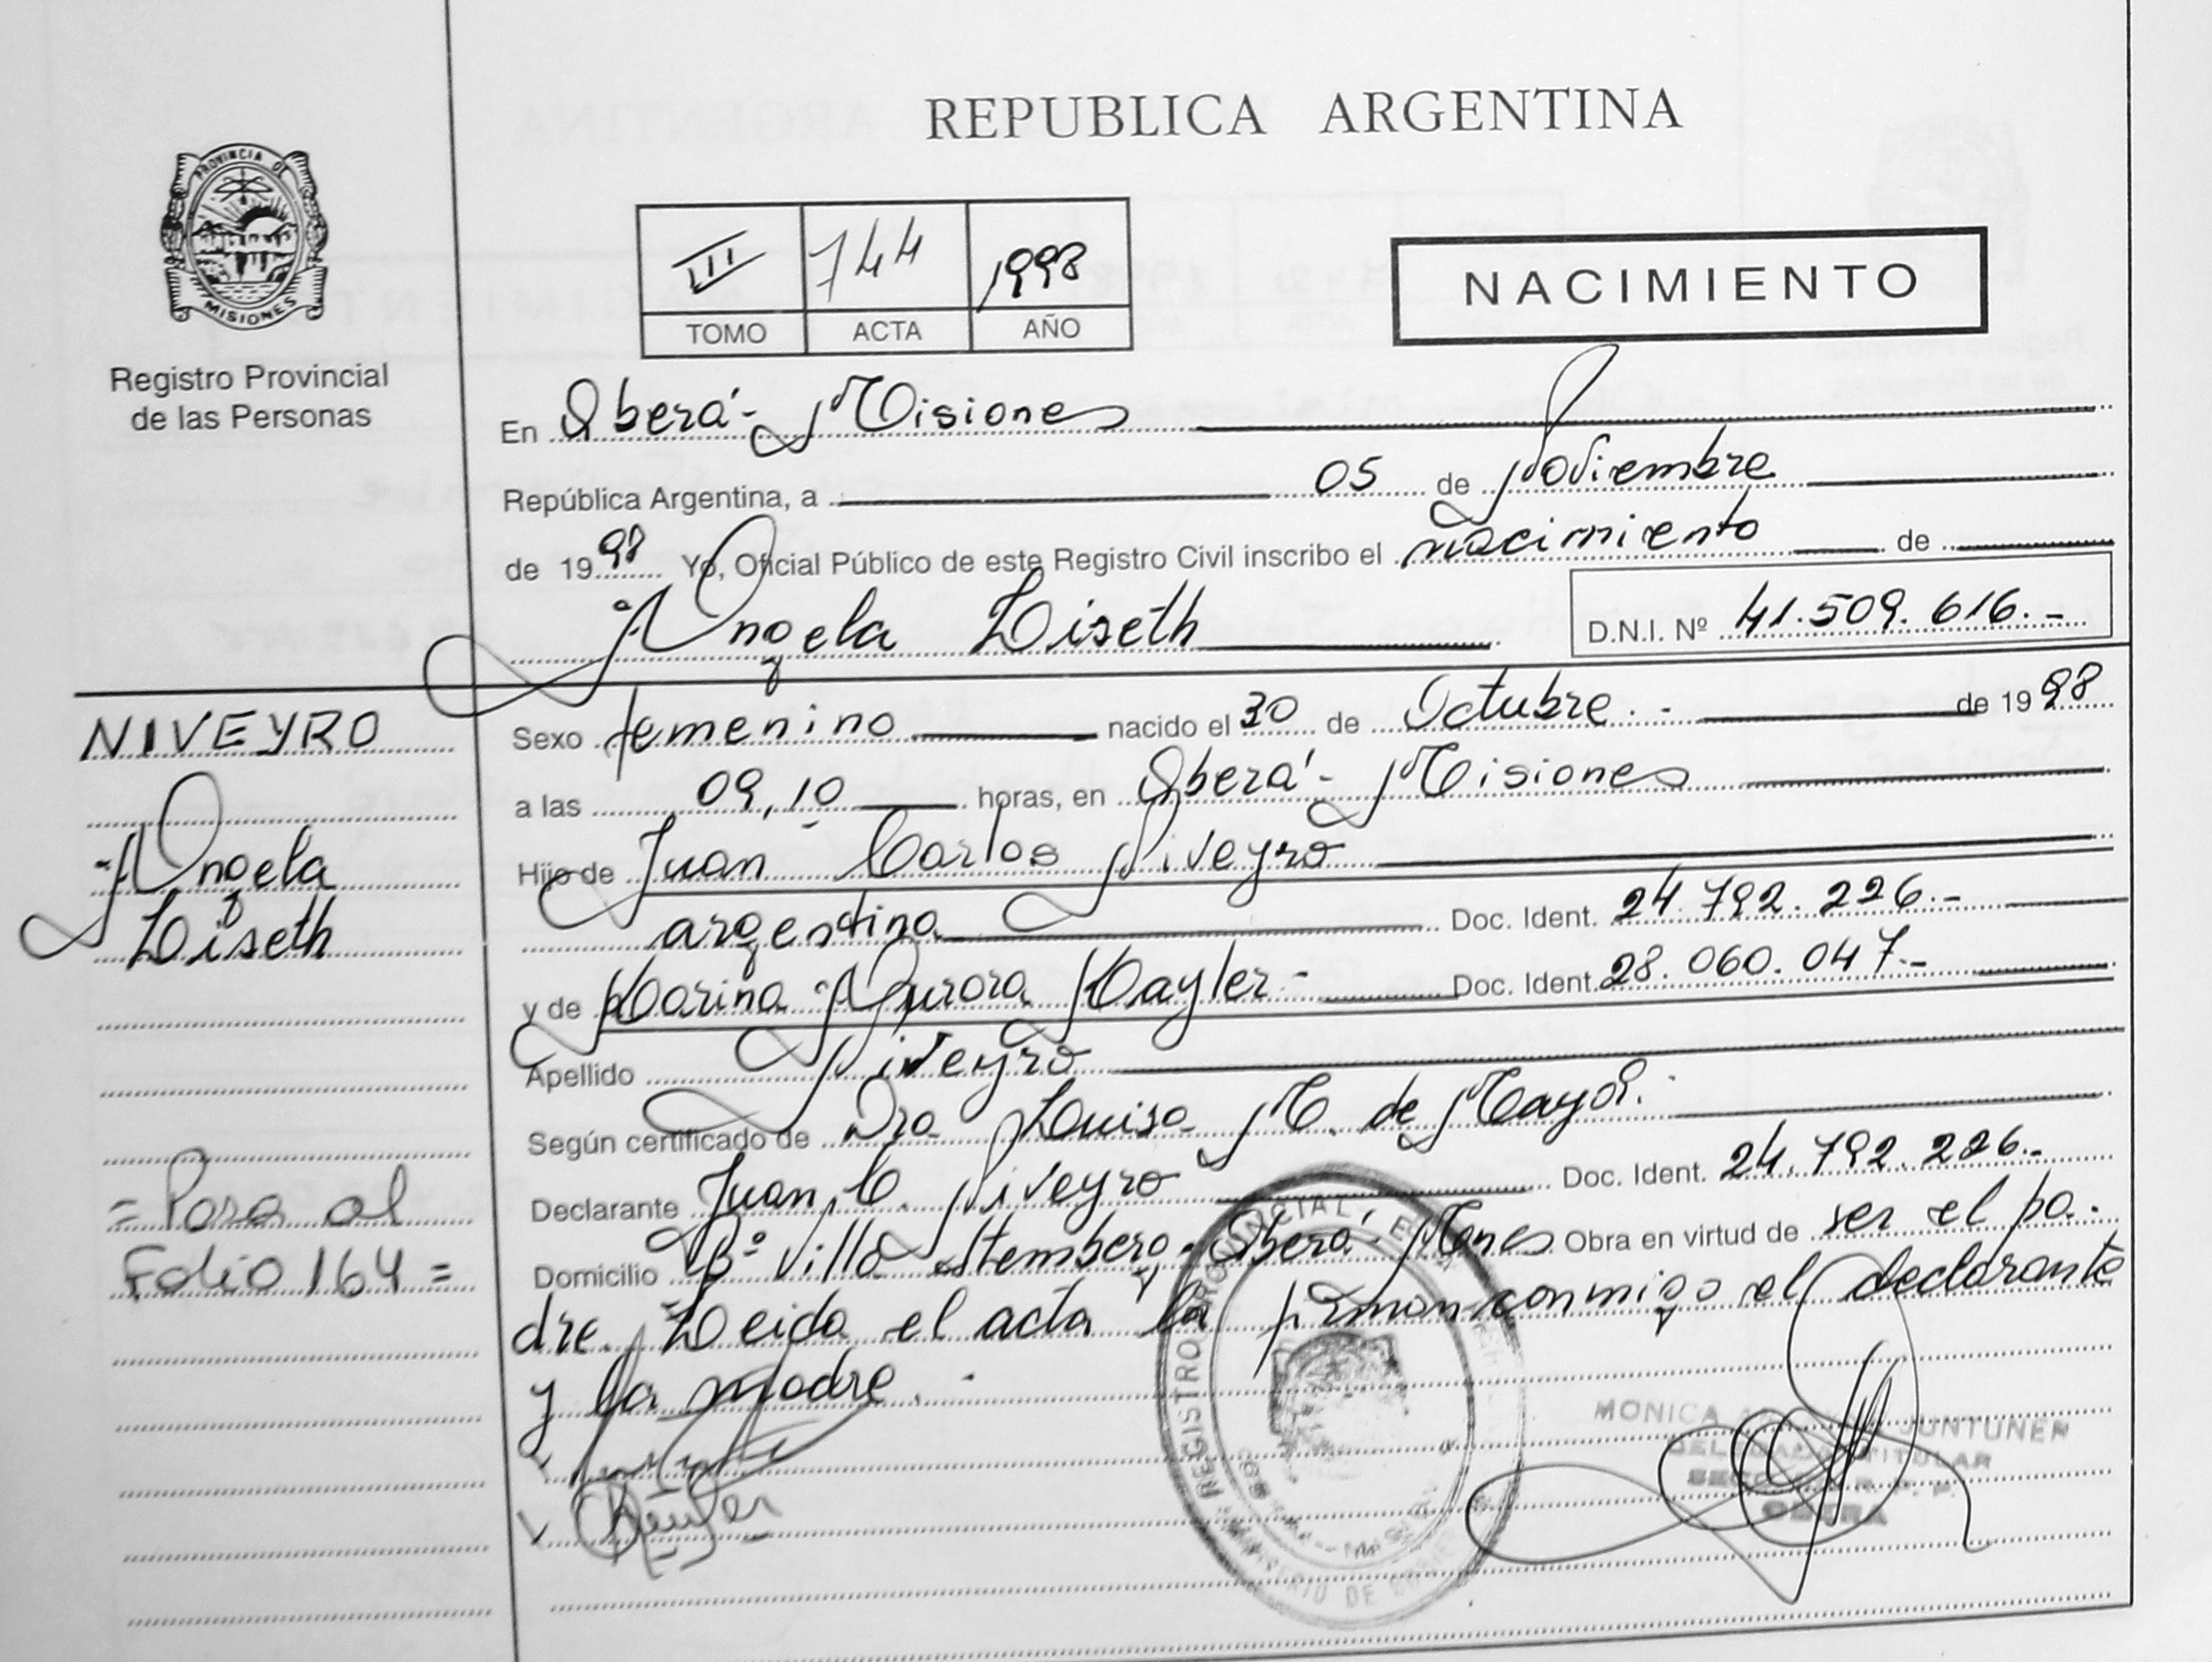 REPUBLICA ARGENTINA
PROVINCIA DE
MISIONES
Registro Provincial
de las Personas
III 744 1998
TOMO ACTA AÑO
NACIMIENTO
En Oberá - Misiones
República Argentina, a 05 de Noviembre
de 1998 Yo, Oficial Público de este Registro Civil inscribo el nacimiento de
Angela Liseth D.N.I. Nº 41.509.616.-
NIVEYRO
Angela
Liseth
= Pasa al
Folio 164 =
Sexo femenino nacido el 30 de Octubre.- de 1998
a las 09,10 horas, en Oberá - Misiones
Hijo de Juan Carlos Niveyro
argentino Doc. Ident. 24.792.226.-
y de Karina Aurora Kayler - Doc. Ident. 28.060.047.-
Apellido Niveyro
Según certificado de Dra Luisa M. de
Declarante Juan C. Niveyro Doc. Ident. 24.792.226.-
Domicilio Bº Villa Stemberg - Oberá - Mnes Obra en virtud de ser el pa-
dre. Leida el acta la firman conmigo el declarante
y la madre. -
REGISTRO PROVINCIAL
MINISTERIO DE
MONICA JUNTUNEN
TITULAR
OBERA